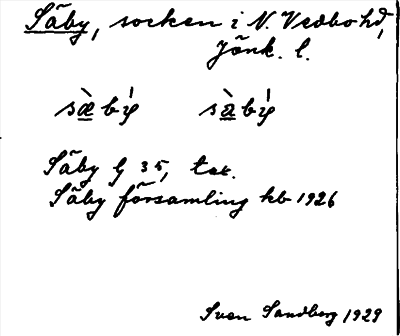 Säby, socken i N. Vedbo hd,
Jönk. l.
Säby G 35, tax.
Säby församling kb 1926
Sven Sandberg 1929